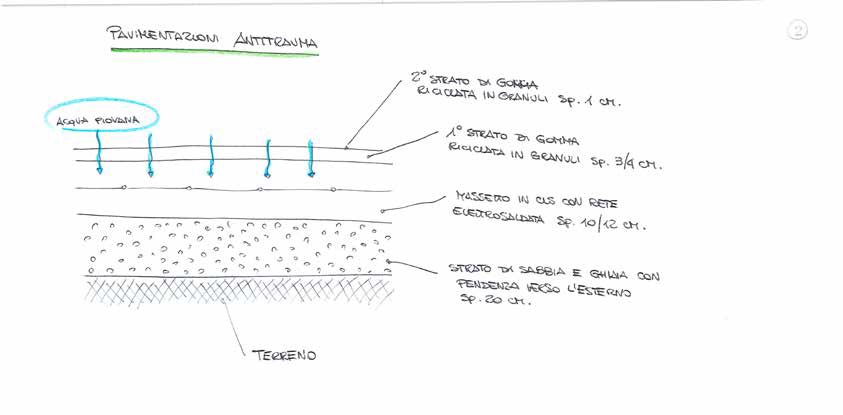 PAVIMENTAZIONI ANTITRAUMA
2
2° STRATO DI GOMMA
RICICLATA IN GRANULI SP. 1 CM.
ACQUA PIOVANA
1° STRATO DI GOMMA
RICICLATA IN GRANULI SP. 3/4 CM.
MASSETTO IN CLS CON RETE
ELETTROSALDATA SP. 10/12 CM.
STRATO DI SABBIA E GHIAIA CON
PENDENZA VERSO L'ESTERNO
SP. 20 CM.
TERRENO